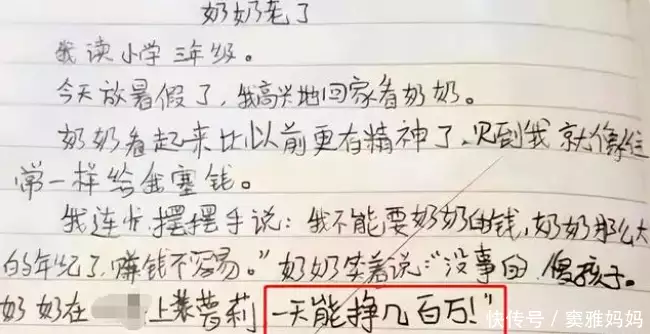 奶奶老了
我读小学三年级。
今天放暑假了，我高兴地回家看奶奶。
奶奶看起来比以前更有精神了，见到我就像往
常一样给我塞钱。
我连忙摆摆手说：我不能要奶奶的钱，奶奶那么大
的年纪了，赚钱不容易。”奶奶笑着说：“没事的，傻孩子。
奶奶在 上装萝莉 一天能挣几百万！”
快传号/窦雅妈妈